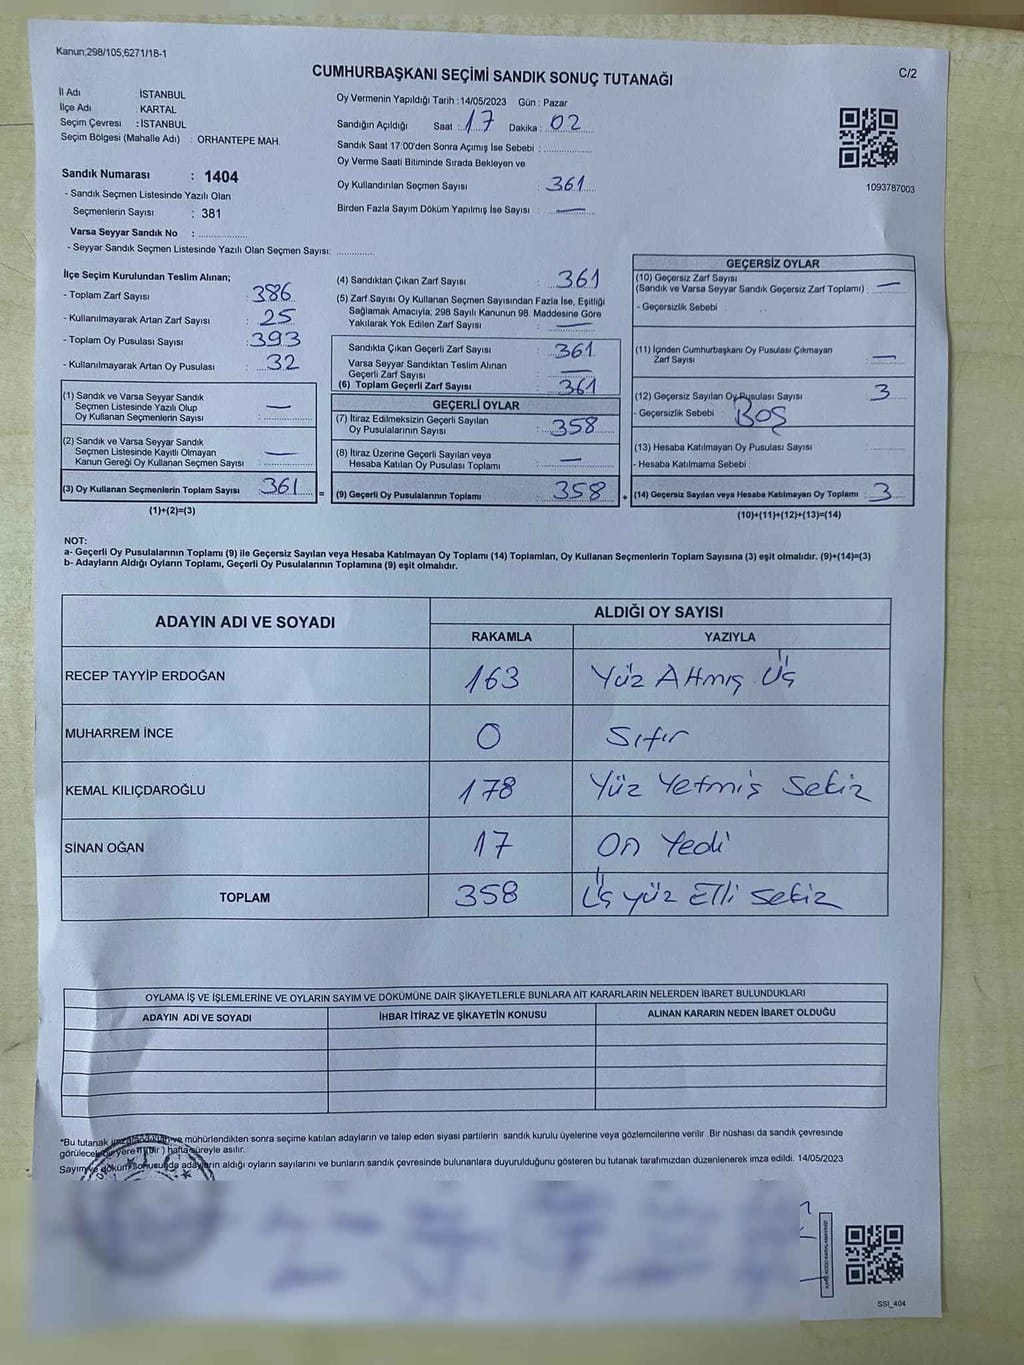 Kanun;298/105;6271/18-1
CUMHURBAŞKANI SEÇİMİ SANDIK SONUÇ TUTANAĞI
C/2
İl Adı : İSTANBUL
İlçe Adı : KARTAL
Seçim Çevresi : İSTANBUL
Seçim Bölgesi (Mahalle Adı) : ORHANTEPE MAH.
Sandık Numarası : 1404
- Sandık Seçmen Listesinde Yazılı Olan
Seçmenlerin Sayısı : 381
Varsa Seyyar Sandık No :
- Seyyar Sandık Seçmen Listesinde Yazılı Olan Seçmen Sayısı:
Oy Vermenin Yapıldığı Tarih : 14/05/2023 Gün : Pazar
Sandığın Açıldığı Saat : 17 Dakika : 02
Sandık Saat 17:00'den Sonra Açımış İse Sebebi :
Oy Verme Saati Bitiminde Sırada Bekleyen ve
Oy Kullandırılan Seçmen Sayısı : 361
Birden Fazla Sayım Döküm Yapılmış İse Sayısı : —
1093787003
İlçe Seçim Kurulundan Teslim Alınan;
- Toplam Zarf Sayısı : 386
- Kullanılmayarak Artan Zarf Sayısı : 25
- Toplam Oy Pusulası Sayısı : 393
- Kullanılmayarak Artan Oy Pusulası : 32
(1) Sandık ve Varsa Seyyar Sandık
Seçmen Listesinde Yazılı Olup
Oy Kullanan Seçmenlerin Sayısı : —
(2) Sandık ve Varsa Seyyar Sandık
Seçmen Listesinde Kayıtlı Olmayan
Kanun Gereği Oy Kullanan Seçmen Sayısı : —
(3) Oy Kullanan Seçmenlerin Toplam Sayısı : 361
(1)+(2)=(3)
(4) Sandıktan Çıkan Zarf Sayısı : 361
(5) Zarf Sayısı Oy Kullanan Seçmen Sayısından Fazla İse, Eşitliği
Sağlamak Amacıyla; 298 Sayılı Kanunun 98. Maddesine Göre
Yakılarak Yok Edilen Zarf Sayısı : —
Sandıkta Çıkan Geçerli Zarf Sayısı : 361
Varsa Seyyar Sandıktan Teslim Alınan
Geçerli Zarf Sayısı : —
(6) Toplam Geçerli Zarf Sayısı : 361
GEÇERLİ OYLAR
(7) İtiraz Edilmeksizin Geçerli Sayılan
Oy Pusulalarının Sayısı : 358
(8) İtiraz Üzerine Geçerli Sayılan veya
Hesaba Katılan Oy Pusulası Toplamı : —
= (9) Geçerli Oy Pusulalarının Toplamı : 358 +
GEÇERSİZ OYLAR
(10) Geçersiz Zarf Sayısı
(Sandık ve Varsa Seyyar Sandık Geçersiz Zarf Toplamı) : —
- Geçersizlik Sebebi :
(11) İçinden Cumhurbaşkanı Oy Pusulası Çıkmayan
Zarf Sayısı : —
(12) Geçersiz Sayılan Oy Pusulası Sayısı : 3
- Geçersizlik Sebebi : BOŞ
(13) Hesaba Katılmayan Oy Pusulası Sayısı :
- Hesaba Katılmama Sebebi :
(14) Geçersiz Sayılan veya Hesaba Katılmayan Oy Toplamı : 3
(10)+(11)+(12)+(13)=(14)
NOT:
a- Geçerli Oy Pusulalarının Toplamı (9) ile Geçersiz Sayılan veya Hesaba Katılmayan Oy Toplamı (14) Toplamları, Oy Kullanan Seçmenlerin Toplam Sayısına (3) eşit olmalıdır. (9)+(14)=(3)
b- Adayların Aldığı Oyların Toplamı, Geçerli Oy Pusulalarının Toplamına (9) eşit olmalıdır.
ADAYIN ADI VE SOYADI ALDIĞI OY SAYISI
RAKAMLA YAZIYLA
RECEP TAYYİP ERDOĞAN 163 Yüz Altmış Üç
MUHARREM İNCE 0 Sıfır
KEMAL KILIÇDAROĞLU 178 Yüz Yetmiş Sekiz
SİNAN OĞAN 17 On Yedi
TOPLAM 358 Üç yüz Elli sekiz
OYLAMA İŞ VE İŞLEMLERİNE VE OYLARIN SAYIM VE DÖKÜMÜNE DAİR ŞİKAYETLERLE BUNLARA AİT KARARLARIN NELERDEN İBARET BULUNDUKLARI
ADAYIN ADI VE SOYADI İHBAR İTİRAZ VE ŞİKAYETİN KONUSU ALINAN KARARIN NEDEN İBARET OLDUĞU
*Bu tutanak ve mühürlendikten sonra seçime katılan adayların ve talep eden siyasi partilerin sandık kurulu üyelerine veya gözlemcilerine verilir .Bir nüshası da sandık çevresinde
hafta süreyle asılır.
Sayım ve döküm sonucunda adayların aldığı oyların sayılarını ve bunların sandık çevresinde bulunanlara duyurulduğunu gösteren bu tutanak tarafımızdan düzenlenerek imza edildi. 14/05/2023
SSI_404